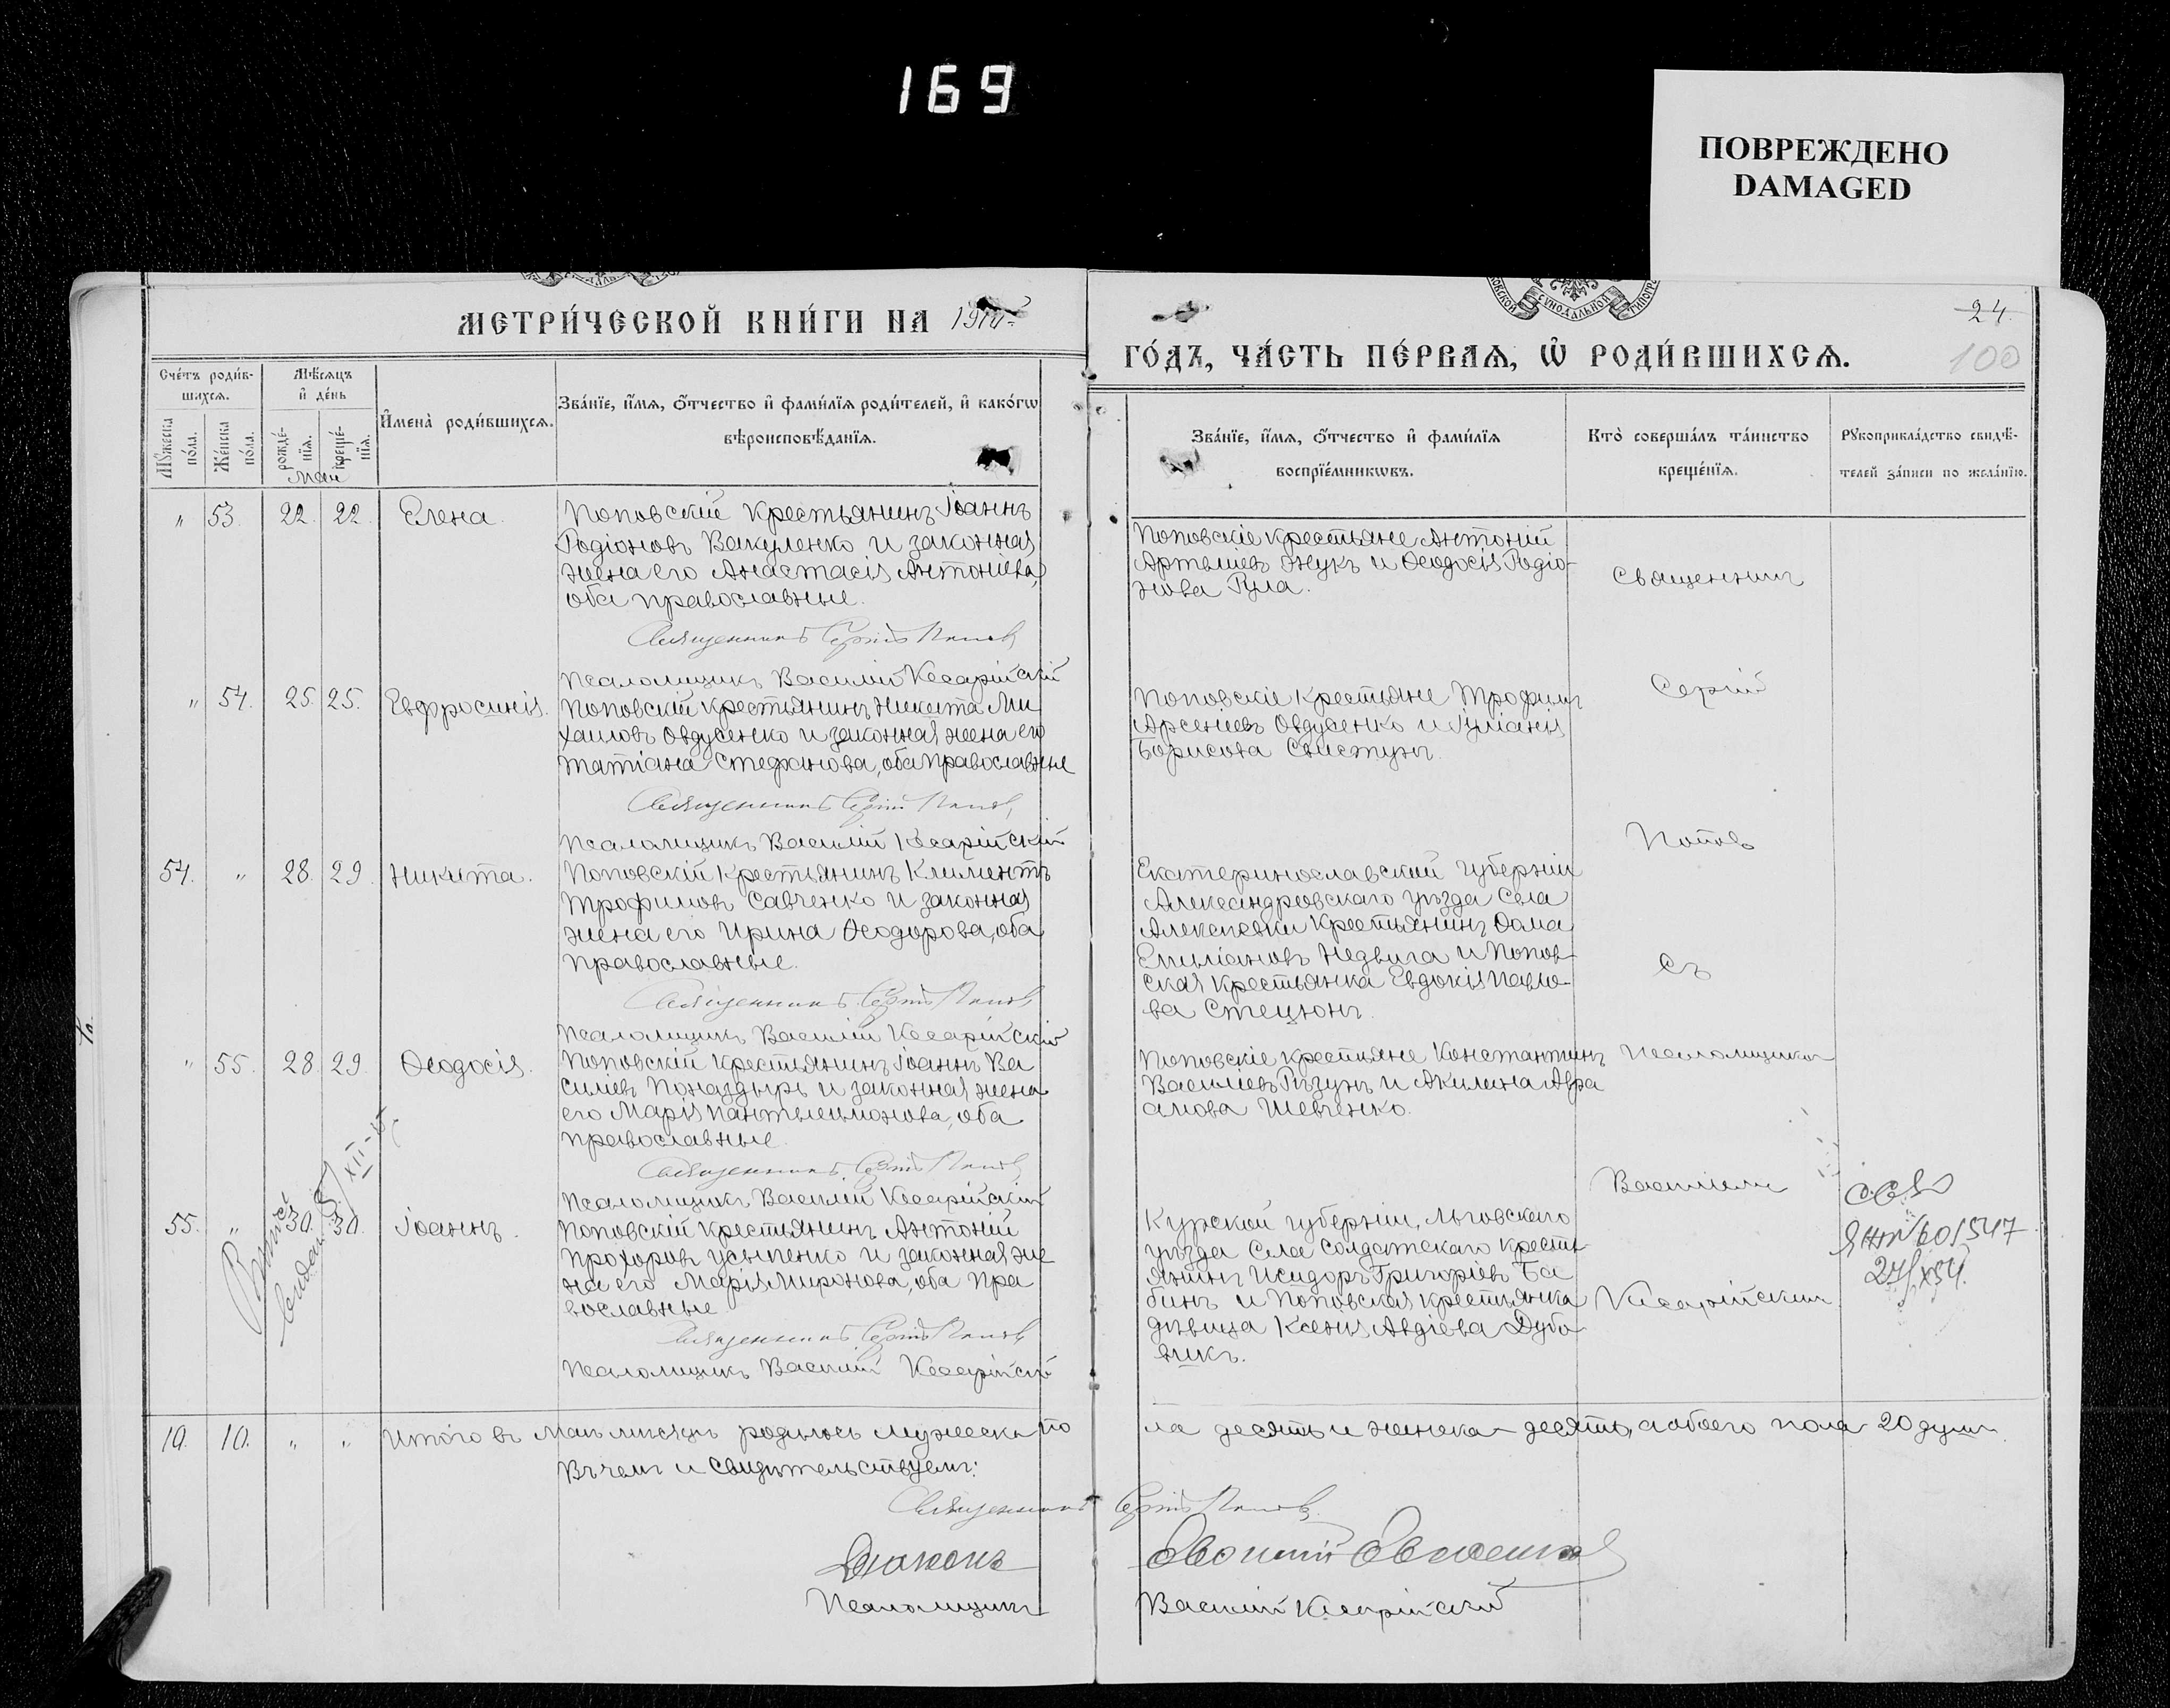 169
ПОВРЕЖДЕНО
DAMAGED
МЕТРИ́ЧЕСКОЙ КНИ́ГИ НА 1914
24
ГО́ДЪ, ЧА́СТЬ ПЕ́РВАѦ, Ѡ҆ РОДИ́ВШИХСѦ.
100
Сче́тъ роди́в-
шихсѧ.
Мѣ́сѧцъ
и҆ де́нь
Мꙋ́жеска по́ла.
Же́нска по́ла.
рожде́-нїѧ.
креще́-нїѧ.
Май
И҆мена̀ роди́вшихсѧ.
Зва́нїе, и҆́мѧ, ѻ҆́тчество и҆ фами́лїѧ роди́телей, и҆ како́гѡ
вѣроисповѣ́данїѧ.
Зва́нїе, и҆́мѧ, ѻ҆́тчество и҆ фами́лїѧ
воспрїе́мникѡвъ.
Кто̀ соверша́лъ та́инство
креще́нїѧ.
Рꙋкоприкла́дство свидѣ́-
телей за́писи по жела́нїю.
" 53. 22. 22. Елена.
Поповскій крестьянинъ Іоаннъ
Родіоновъ Вакуленко и законная
жена его Анастасія Антоніева,
оба православные.
Священникъ Сергій Поповъ
Псаломщикъ Василій Кесарійскій
Поповскіе крестьяне Антоній
Артеміевъ Жукъ и Ѳеодосія Родіо-
нова Гула.
Священникъ
" 54. 25. 25. Евфросинія.
Поповскій крестьянинъ Никита Ми-
хаиловъ Овдусенко и законная жена его
Татіана Стефанова, оба православные
Священникъ Сергій Поповъ
Псаломщикъ Василій Кесарійскій
Поповскіе крестьяне Трофимъ
Арсеніевъ Овдусенко и Іуліанія
Борисова Свистунъ.
Сергій
54. " 28. 29. Никита.
Поповскій крестьянинъ Климентъ
Трофимовъ Савченко и законная
жена его Ирина Ѳеодорова, оба
православные.
Священникъ Сергій Поповъ
Псаломщикъ Василій Кесарійскій
Екатеринославской губерніи
Александровскаго уѣзда села
Алексѣевки крестьянинъ Ѳома
Емиліановъ Недвига и Попов-
ская крестьянка Евдокія Павло-
ва Стецюнъ.
Поповъ
съ
" 55. 28. 29. Ѳеодосія.
Поповскій крестьянинъ Іоаннъ Ва
силіевъ Поназдырь и законная жена
его Марія Пантелеимонова, оба
православные.
Священникъ Сергій Поповъ
Псаломщикъ Василій Кесарійскій
Поповскіе крестьяне Константинъ
Василіевъ Рѣзунъ и Акилина Авра
амова Шевченко.
псаломщикомъ
Василіемъ
55. " 30. 30. Іоаннъ.
XII-15
Поповскій крестьянинъ Антоній
Прохоровъ Усыпенко и законная же
на его Марія Миронова, оба пра
вославные
Священникъ Сергій Поповъ
Псаломщикъ Василій Кесарійскій
Курской губерніи, Льговскаго
уѣзда села Солдатскаго кресть
янинъ Исидоръ Григоріевъ Ба
бинъ и Поповская крестьянка
дѣвица Ксенія Авдіева Дубо
викъ.
Кесарійскимъ
601547
10. 10. " " Итого въ Маѣ мѣсяцѣ родилось мужеска по
ла десять и женска — десять, а обоего пола 20 душъ.
Въ чемъ и свидѣтельствуемъ:
Священникъ Сергій Поповъ.
Діаконъ
Псаломщикъ Василій Кесарійскій